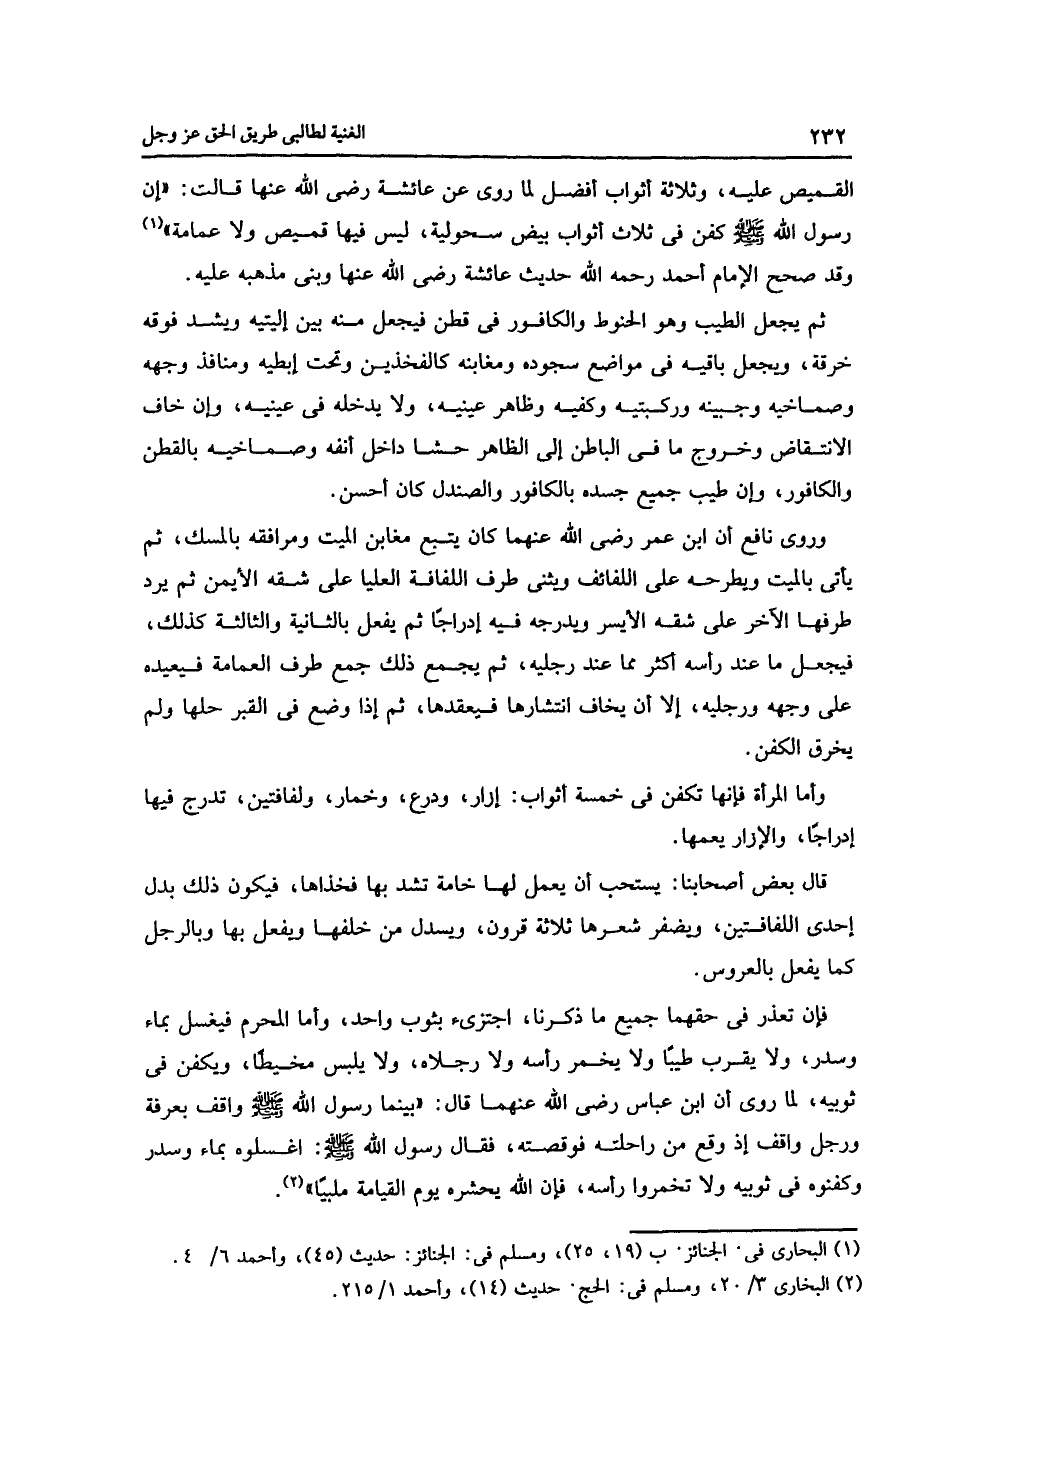 ٢٣٢ الغنية لطالبى طريق الحق عز وجل
القميص عليه، وثلاثة أثواب أفضل لما روى عن عائشة رضى الله عنها قالت: «إن
رسول الله ﷺ كفن فى ثلاث أثواب بيض سحولية، ليس فيها قميص ولا عمامة»(١)
وقد صحح الإمام أحمد رحمه الله حديث عائشة رضى الله عنها وبنى مذهبه عليه.
ثم يجعل الطيب وهو الحنوط والكافور فى قطن فيجعل منه بين إليتيه ويشد فوقه
خرقة، ويجعل باقيه فى مواضع سجوده ومغابنه كالفخذين وتحت إبطيه ومنافذ وجهه
وصماخيه وجبينه وركبتيه وكفيه وظاهر عينيه، ولا يدخله فى عينيه، وإن خاف
الانتقاض وخروج ما فى الباطن إلى الظاهر حشا داخل أنفه وصماخيه بالقطن
والكافور، وإن طيب جميع جسده بالكافور والصندل كان أحسن.
وروى نافع أن ابن عمر رضى الله عنهما كان يتبع مغابن الميت ومرافقه بالمسك، ثم
يأتى بالميت ويطرحه على اللفائف ويثنى طرف اللفافة العليا على شقه الأيمن ثم يرد
طرفها الآخر على شقه الأيسر ويدرجه فيه إدراجًا ثم يفعل بالثانية والثالثة كذلك،
فيجعل ما عند رأسه أكثر مما عند رجليه، ثم يجمع ذلك جمع طرف العمامة فيعيده
على وجهه ورجليه، إلا أن يخاف انتشارها فيعقدها، ثم إذا وضع فى القبر حلها ولم
يخرق الكفن.
وأما المرأة فإنها تكفن فى خمسة أثواب: إزار، ودرع، وخمار، ولفافتين، تدرج فيها
إدراجًا، والإزار يعمها.
قال بعض أصحابنا: يستحب أن يعمل لها خامة تشد بها فخذاها، فيكون ذلك بدل
إحدى اللفافتين، ويضفر شعرها ثلاثة قرون، ويسدل من خلفها ويفعل بها وبالرجل
كما يفعل بالعروس.
فإن تعذر فى حقهما جميع ما ذكرنا، اجتزىء بثوب واحد، وأما المحرم فيغسل بماء
وسدر، ولا يقرب طيبًا ولا يخمر رأسه ولا رجلاه، ولا يلبس مخيطًا، ويكفن فى
ثوبيه، لما روى أن ابن عباس رضى الله عنهما قال: «بينما رسول الله ﷺ واقف بعرفة
ورجل واقف إذ وقع من راحلته فوقصته، فقال رسول الله ﷺ: اغسلوه بماء وسدر
وكفنوه فى ثوبيه ولا تخمروا رأسه، فإن الله يحشره يوم القيامة ملبيًا»(٢).
(١) البخارى فى· الجنائز· ب (١٩، ٢٥)، ومسلم فى: الجنائز: حديث (٤٥)، وأحمد ٦/ ٤ .
(٢) البخارى ٣/ ٢٠، ومسلم فى: الحج· حديث (١٤)، وأحمد ١/ ٢١٥.